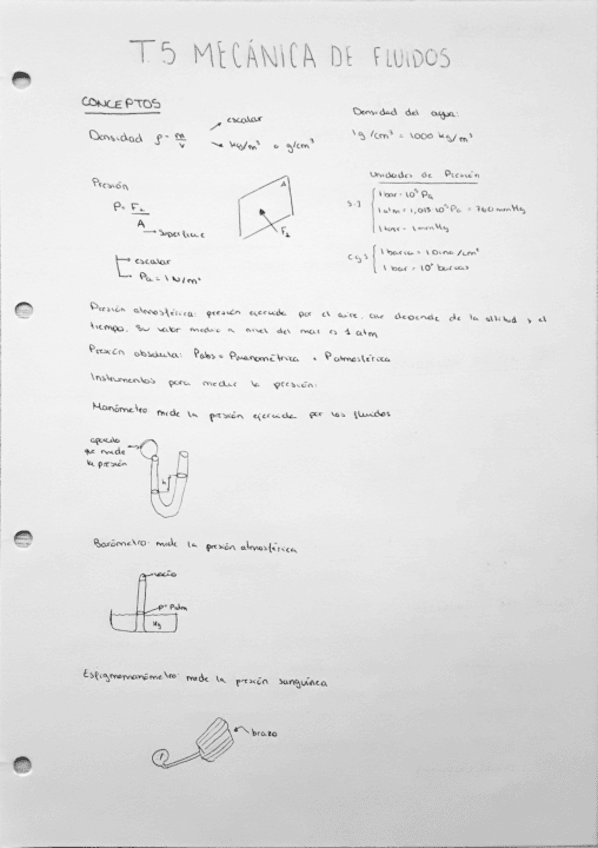 T.5 MECÁNICA DE FLUIDOS
CONCEPTOS
Densidad ρ = m/v
escalar
kg/m³ o g/cm³
Densidad del agua:
1g/cm³ = 1000 kg/m³
Presión
P = F⊥/A
Superficie
escalar
Pa = 1 N/m²
A
F⊥
Unidades de Presión
S.I
1 bar = 10⁵ Pa
1 atm = 1,013·10⁵ Pa = 760 mmHg
1 torr = 1 mmHg
cgs
1 baria = 1 dina/cm²
1 bar = 10⁶ barias
Presión atmosférica: presión ejercida por el aire, que depende de la altitud y el
tiempo. Su valor medio a nivel del mar es 1 atm
Presión absoluta: Pabs = Pmanométrica + Patmosférica
Instrumentos para medir la presión:
Manómetro: mide la presión ejercida por los fluidos
aparato
que mide
la presión
h
Barómetro: mide la presión atmosférica
vacío
P = Patm
Hg
Esfigmomanómetro: mide la presión sanguínea
brazo